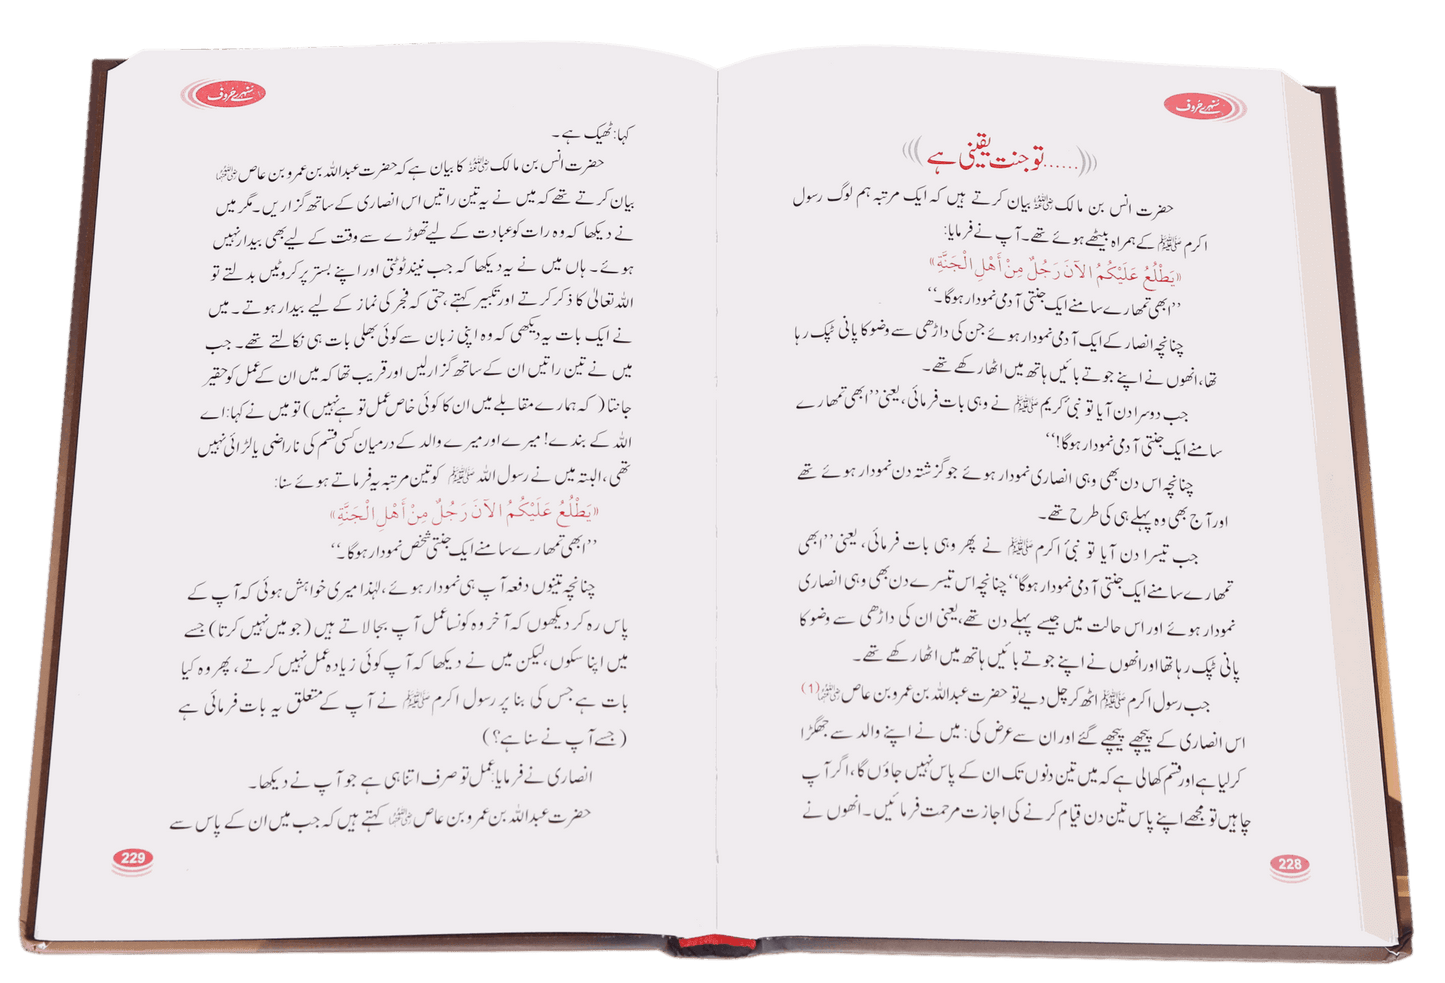 سنہرے حروف
......تو جنت یقینی ہے
حضرت انس بن مالک ؓ بیان کرتے ہیں کہ ایک مرتبہ ہم لوگ رسول
اکرم ﷺ کے ہمراہ بیٹھے ہوئے تھے۔ آپ نے فرمایا:
«يَطْلُعُ عَلَيْكُمُ الآنَ رَجُلٌ مِنْ أَهْلِ الْجَنَّةِ»
’’ابھی تمھارے سامنے ایک جنتی آدمی نمودار ہوگا۔‘‘
چنانچہ انصار کے ایک آدمی نمودار ہوئے جن کی داڑھی سے وضو کا پانی ٹپک رہا
تھا، انھوں نے اپنے جوتے بائیں ہاتھ میں اٹھا رکھے تھے۔
جب دوسرا دن آیا تو نبی ٔکریم ﷺ نے وہی بات فرمائی، یعنی ’’ابھی تمھارے
سامنے ایک جنتی آدمی نمودار ہوگا!‘‘
چنانچہ اس دن بھی وہی انصاری نمودار ہوئے جو گزشتہ دن نمودار ہوئے تھے
اور آج بھی وہ پہلے ہی کی طرح تھے۔
جب تیسرا دن آیا تو نبیٔ اکرم ﷺ نے پھر وہی بات فرمائی، یعنی ’’ابھی
تمھارے سامنے ایک جنتی آدمی نمودار ہوگا‘‘ چنانچہ اس تیسرے دن بھی وہی انصاری
نمودار ہوئے اور اس حالت میں جیسے پہلے دن تھے، یعنی ان کی داڑھی سے وضو کا
پانی ٹپک رہا تھا اور انھوں نے اپنے جوتے بائیں ہاتھ میں اٹھا رکھے تھے۔
جب رسول اکرم ﷺ اٹھ کر چل دیے تو حضرت عبداللہ بن عمرو بن عاص ؓ (1)
اس انصاری کے پیچھے پیچھے گئے اور ان سے عرض کی: میں نے اپنے والد سے جھگڑا
کرلیا ہے اور قسم کھالی ہے کہ میں تین دنوں تک ان کے پاس نہیں جاؤں گا، اگر آپ
چاہیں تو مجھے اپنے پاس تین دن قیام کرنے کی اجازت مرحمت فرمائیں۔ انھوں نے
228
سنہرے حروف
کہا: ٹھیک ہے۔
حضرت انس بن مالک ؓ کا بیان ہے کہ حضرت عبداللہ بن عمرو بن عاص ؓ
بیان کرتے تھے کہ میں نے یہ تین راتیں اس انصاری کے ساتھ گزاریں۔ مگر میں
نے دیکھا کہ وہ رات کو عبادت کے لیے تھوڑے سے وقت کے لیے بھی بیدار نہیں
ہوئے۔ ہاں میں نے یہ دیکھا کہ جب نیند ٹوٹتی اور اپنے بستر پر کروٹیں بدلتے تو
اللہ تعالیٰ کا ذکر کرتے اور تکبیر کہتے، حتی کہ فجر کی نماز کے لیے بیدار ہوتے۔ میں
نے ایک بات یہ دیکھی کہ وہ اپنی زبان سے کوئی بھلی بات ہی نکالتے تھے۔ جب
میں نے تین راتیں ان کے ساتھ گزار لیں اور قریب تھا کہ میں ان کے عمل کو حقیر
جانتا (کہ ہمارے مقابلے میں ان کا کوئی خاص عمل تو ہے نہیں) تو میں نے کہا: اے
اللہ کے بندے! میرے اور میرے والد کے درمیان کسی قسم کی ناراضی یا لڑائی نہیں
تھی، البتہ میں نے رسول اللہ ﷺ کو تین مرتبہ یہ فرماتے ہوئے سنا:
«يَطْلُعُ عَلَيْكُمُ الآنَ رَجُلٌ مِنْ أَهْلِ الْجَنَّةِ»
’’ابھی تمھارے سامنے ایک جنتی شخص نمودار ہوگا۔‘‘
چنانچہ تینوں دفعہ آپ ہی نمودار ہوئے، لہٰذا میری خواہش ہوئی کہ آپ کے
پاس رہ کر دیکھوں کہ آخر وہ کونسا عمل آپ بجا لاتے ہیں (جو میں نہیں کرتا) جسے
میں اپنا سکوں، لیکن میں نے دیکھا کہ آپ کوئی زیادہ عمل نہیں کرتے، پھر وہ کیا
بات ہے جس کی بنا پر رسول اکرم ﷺ نے آپ کے متعلق یہ بات فرمائی ہے
(جسے آپ نے سنا ہے؟)
انصاری نے فرمایا: عمل تو صرف اتنا ہی ہے جو آپ نے دیکھا۔
حضرت عبداللہ بن عمرو بن عاص ؓ کہتے ہیں کہ جب میں ان کے پاس سے
229